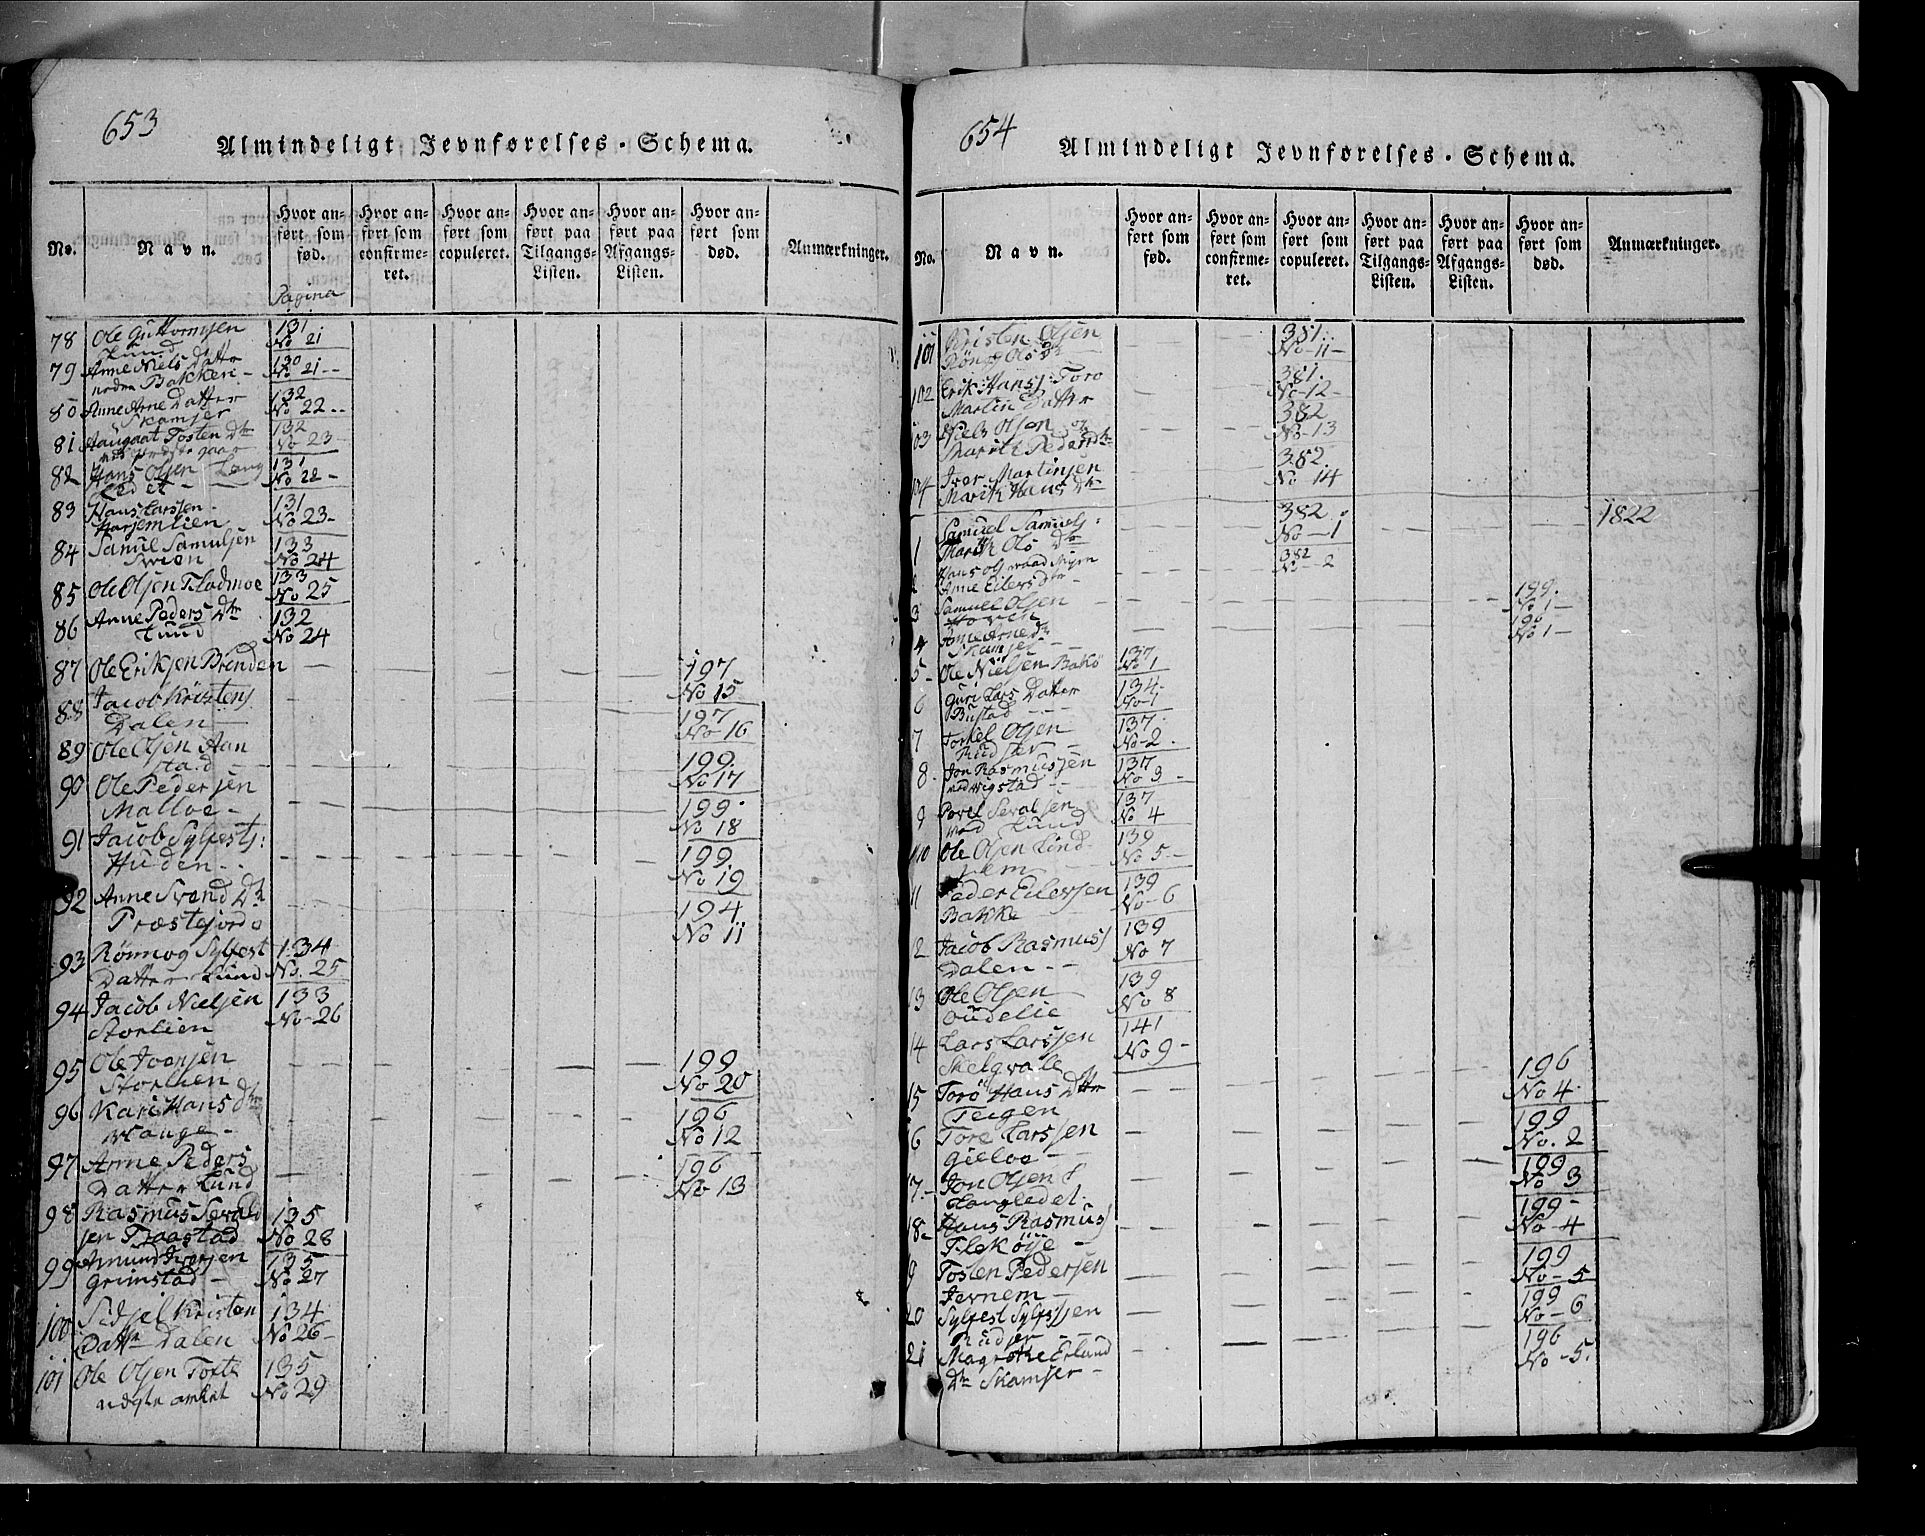 653
Almindeligt Jevnførelses-Schema.
No.
Navn.
Hvor an-
ført som
fød.
Hvor an-
ført som
confirme-
ret.
Hvor an-
ført som
copuleret.
Hvor an-
ført paa
Tilgangs-
Listen.
Hvor an-
ført paa
Afgangs-
Listen.
Hvor an-
ført som
død.
Anmærkninger.
Pagina
78 Ole Guttormsen 131
Lund No 21
79 Anne Niels Datter 130
Bakken - No 21 --
80 Anne Arne Datter 132
Skamser No 22 --
81 Tosten Dtr 132
No 23
82 Hans Olsen Lang 131
ledet - No 22 -
83 Hans Larsen 131
Harjemlien No 23 -
84 Samuel Samuelsen 133
No 24
85 Ole Olsen Fladmoe 133
No 25
86 Anne Peders Dtr 132
Lund No 24
87 Ole Eriksen Brenden 197
No 15
88 Jacob Kristens 197
Dalen No 16
89 Ole Olsen Aan 199.
stad No 17
90 Ole Pedersen 199.
Malloe - No 18
91 Jacob Sylfests: 199.
Huden No 19
92 Anne Svend Dtr 194
Præstejordo No 11
93 Rönnog Sylfest 134
Datter Lund No. 25
94 Jacob Nielsen 133
Storlien No-26
95 Ole Joonsen 199
Storlien No 20
96 Kari Hans Dtr 196
Mange - No 12
97 Anne Peders 196
Datter Lund No 13
98 Rasmus Sevald 135
sen Traastad No 28
99 Amund Iversen 135
Grimstad - No 27
100 Sidsel Kristen 134
Datter Dalen No 26-
101 Ole Olsen Tofte 135
No 29
654
Almindeligt Jevnførelses-Schema.
No.
Navn.
Hvor an-
ført som
fød.
Hvor an-
ført som
confirme-
ret.
Hvor an-
ført som
copuleret.
Hvor an-
ført paa
Tilgangs-
Listen.
Hvor an-
ført paa
Afgangs-
Listen.
Hvor an-
ført som
død.
Anmærkninger.
101 Kristen Olsen 381.
Rönnog Ols Dtr No-11-
102 Erik Hans: Toro 381.
Martin Datter No-12-
103 Niels Olsen og 382
Marit Peders Dtr No-13
104 Iver Martinsen 382.
Marit Hans Dtr No 14
1822
1 Samuel Samuels: 382.
Marit Ols Dtr No-1
2 Hans 382
Anne Eilers Dtr - No-2
3 Samuel Olsen 199.
No 1-
4 Arne Dtr 196
Skamser No 1-
5- Ole Nielsen Bakö 137
No 1
6 Guri Lars Datter 134-
Bustad No-1
7 Torkel Olsen 137.
Rudser No-2.
8. Jon Rasmussen 137
No 3 -
9 Povel Sevalsen 137
Lund No 4
10 Ole Olsen Lind- 139
sem No 5-
11 Peder Eilersen 139
Bakke No-6
12 Jacob Rasmus: 139
Dalen -- No 7
13 Ole Olsen 139
Oudelie No 8
14 Lars Larssen 141
Skelqvale No 9 -
15 Torö Hans Dtr 196
Teigen No 4.
16 Tore Larssen 199
Gieloe No. 2
17.- Jon Olsen 199
Langledet. No 3
18- Hans Rasmus: 199-
Flekøye No-4
19 Tosten Pedersen 199
Jernem No-5
20 Sylfest Sylfestsen 199
Rudser No-6
21 Magrethe Erland 196
Dtr Skamser - No-5.